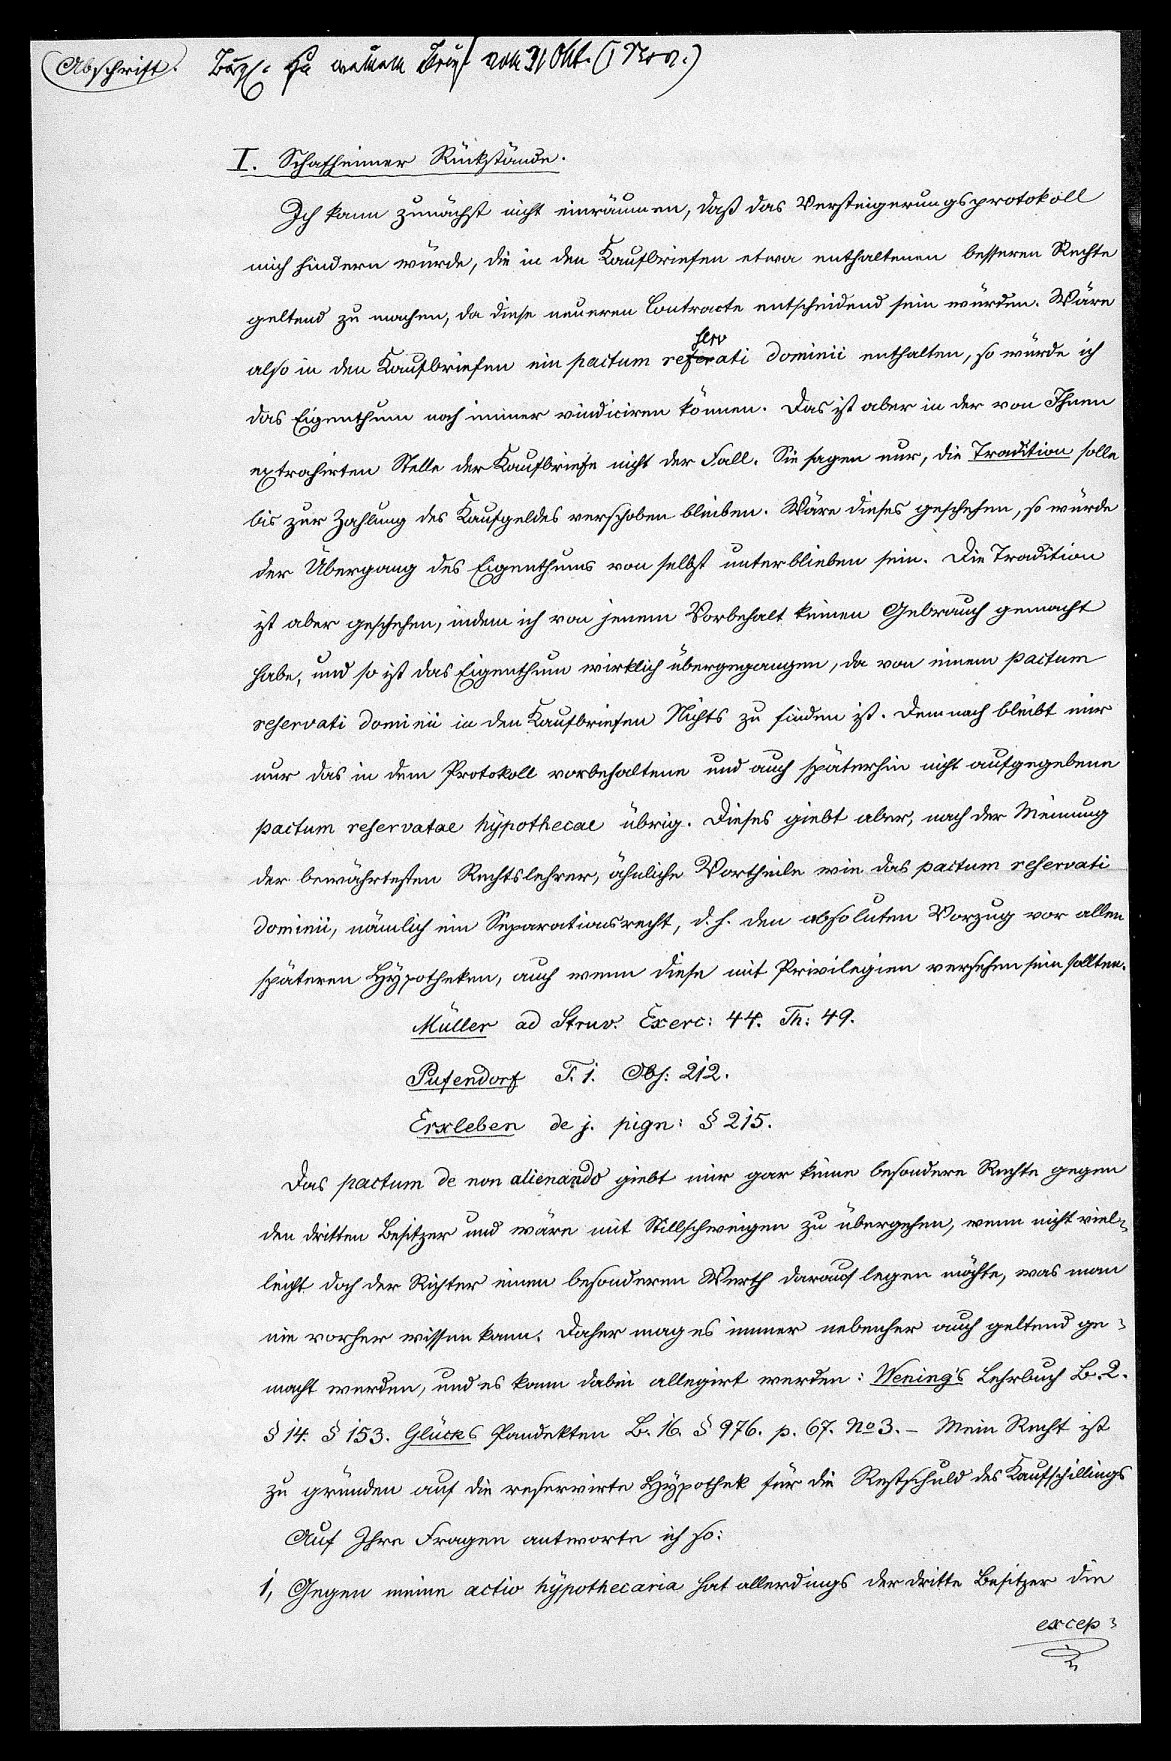 Abschrift. Bezgl. zu meinem Brief vom 31 Okt. (1 Nov.)
I. Schafheimer Rückstände.
Ich kann zunächst nicht einräumen, daß das Versteigerungsprotokoll
mich hindern würde, die in den Kaufbriefen etwa enthaltenen besseren Rechte
geltend zu machen, da diese neueren Contracte entscheidend sein würden. Wäre
also in den Kaufbriefen ein pactum reservati dominii enthalten, so würde ich
das Eigenthum noch immer vindiciren können. Das ist aber in der von Ihnen
extrahirten Stelle der Kaufbriefe nicht der Fall. Sie sagen nur, die Tradition solle
bis zur Zahlung des Kaufgeldes verschoben bleiben. Wäre dieses geschehen, so würde
der Übergang des Eigenthums von selbst unterblieben sein. Die Tradition
ist aber geschehen, indem ich von jenem Vorbehalt keinen Gebrauch gemacht
habe, und so ist das Eigenthum wirklich übergegangen, da von einem pactum
reservati dominii in den Kaufbriefen Nichts zu finden ist. Demnach bleibt mir
nur das in dem Protokoll vorbehaltene und auch späterhin nicht aufgegebene
pactum reservatae hypothecae übrig. Dieses giebt aber, nach der Meinung
der bewährtesten Rechtslehrer, ähnliche Vortheile wie das pactum reservati
dominii, nämlich ein Separationsrecht, d. h. den absoluten Vorzug vor allen
späteren Hypotheken, auch wenn diese mit Privilegien versehen sein sollten.
Müller ad Struv. Exerc: 44. Th: 49.
Pufendorf T. 1. Obs: 212.
Erxleben de j. pign: § 215.
Das pactum de non alienando giebt mir gar keine besondere Rechte gegen
den dritten Besitzer und wäre mit Stillschweigen zu übergehen, wenn nicht viel=
leicht doch der Richter einen besonderen Werth darauf legen möchte, was man
nie vorher wissen kann. Daher mag es immer nebenher auch geltend ge=
macht werden, und es kann dabei allegirt werden: Wening's Lehrbuch B. 2.
§ 14. § 153. Glücks Pandekten B. 16. § 976. p. 67. No 3. – Mein Recht ist
zu gründen auf die reservirte Hypothek für die Restschuld des Kaufschillings
Auf Ihre Fragen antworte ich so:
1, Gegen meine actio hypothecaria hat allerdings der dritte Besitzer die
excep=